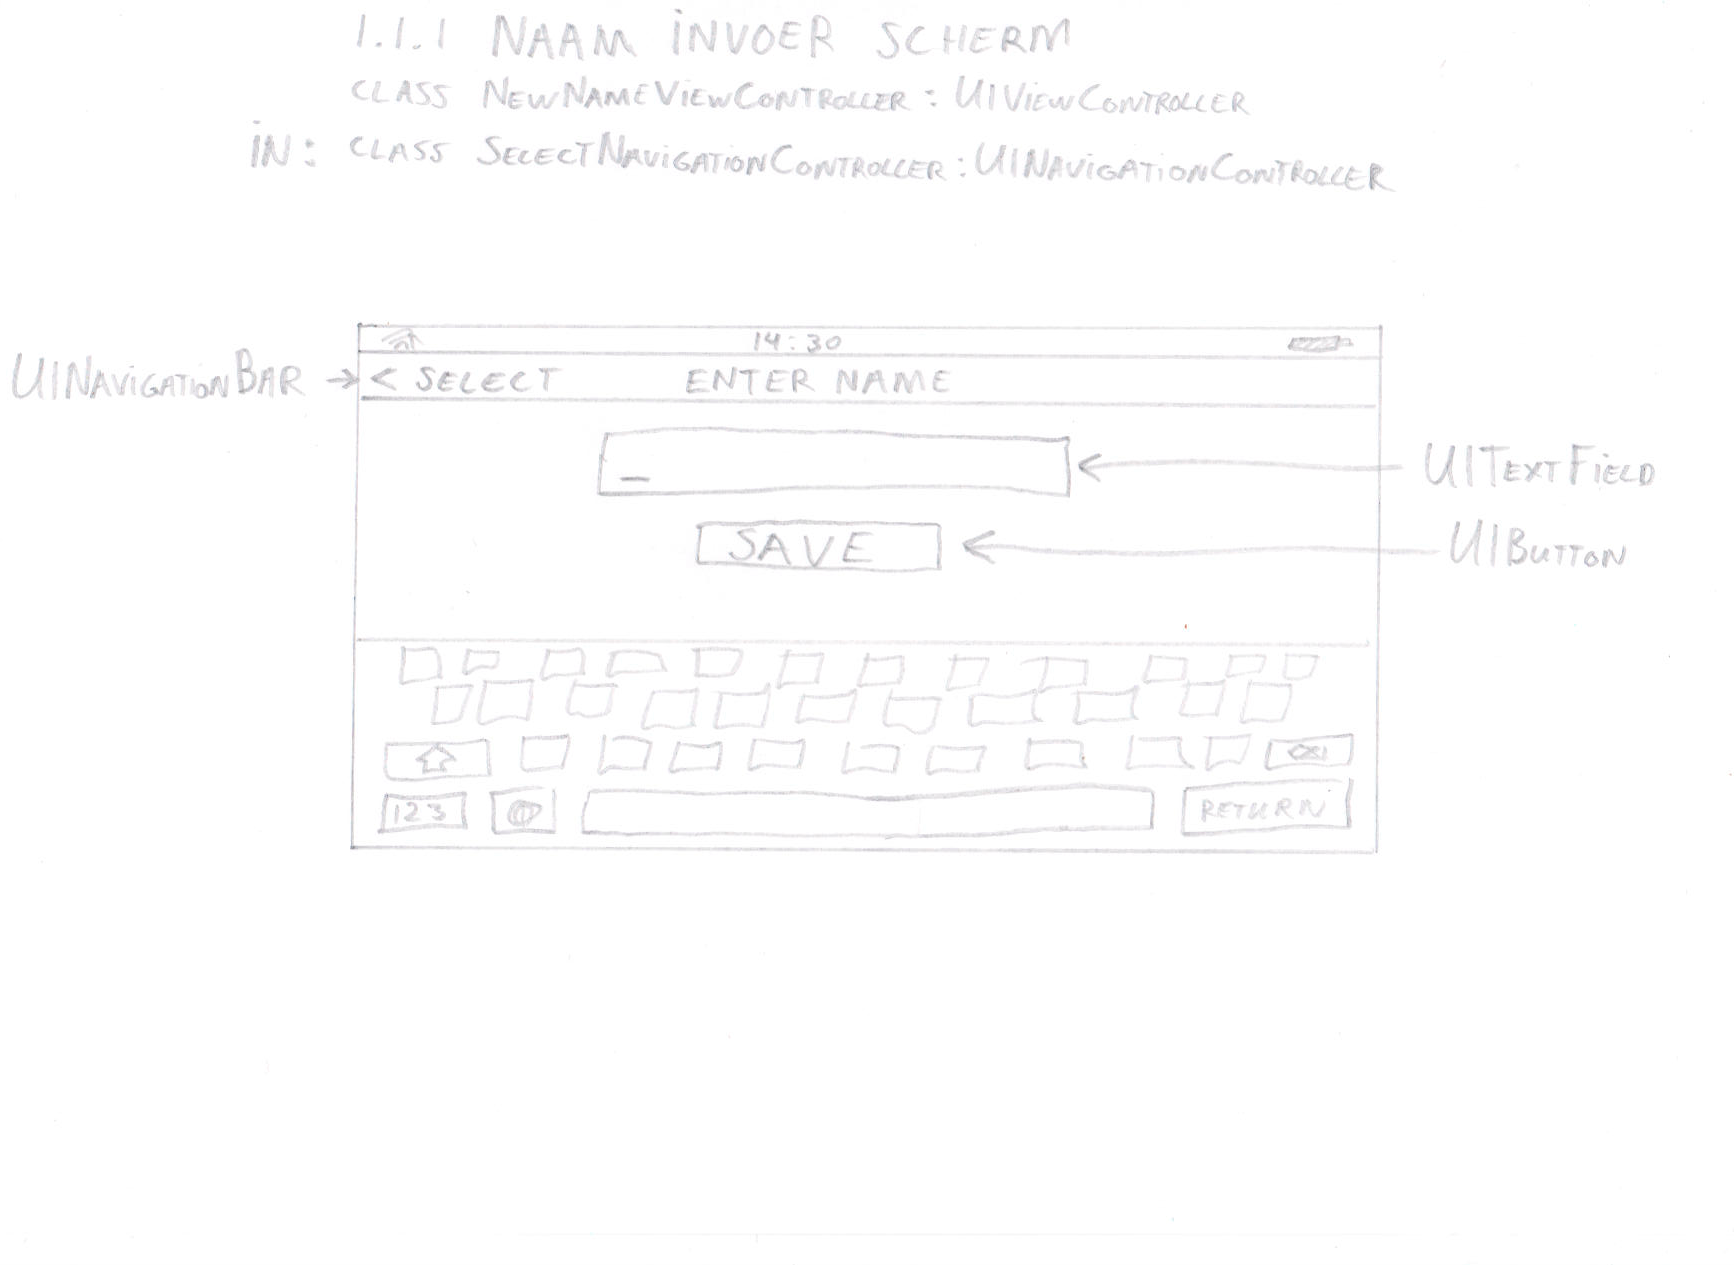 1.1.1 NAAM INVOER SCHERM
CLASS NEWNAMEVIEWCONTROLLER : UIVIEWCONTROLLER
IN: CLASS SELECTNAVIGATIONCONTROLLER : UINAVIGATIONCONTROLLER
14:30
UINAVIGATIONBAR → < SELECT ENTER NAME
UITEXTFIELD
SAVE
UIBUTTON
123 @ RETURN